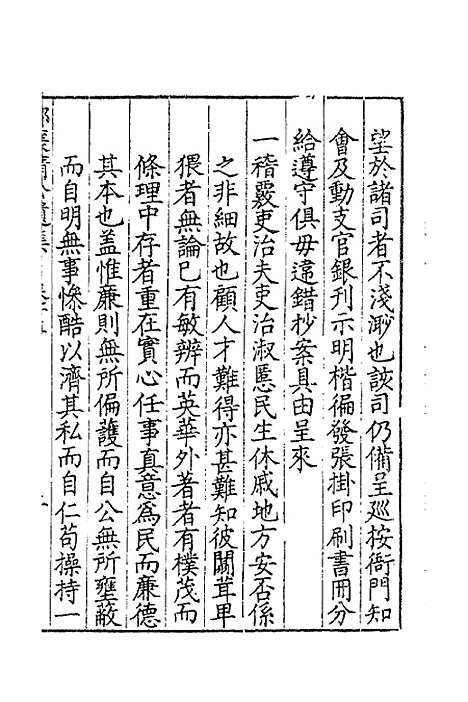 望於諸司者不淺渺也該司仍備呈廵按衙門知
會及動支官銀刊示明楷徧發張掛印刷書冊分
給遵守俱毋違錯抄案具由呈來
一稽覈吏治夫吏治淑慝民生休戚地方安否係
之非細故也顧人才難得亦甚難知彼闒茸畢
猥者無論已有敏辨而英華外著者有樸茂而
條理中存者重在實心任事真意爲民而廉德
其本也盖惟廉則無所偏護而自公無所壅蔽
而自明無事慘酷以濟其私而自仁苟操持一